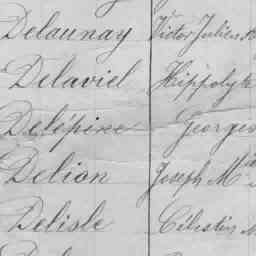 Delaunay Victor Julien
Delaviel Hippolyte
Delépine Georges
Delion Joseph M
Delisle Célestin